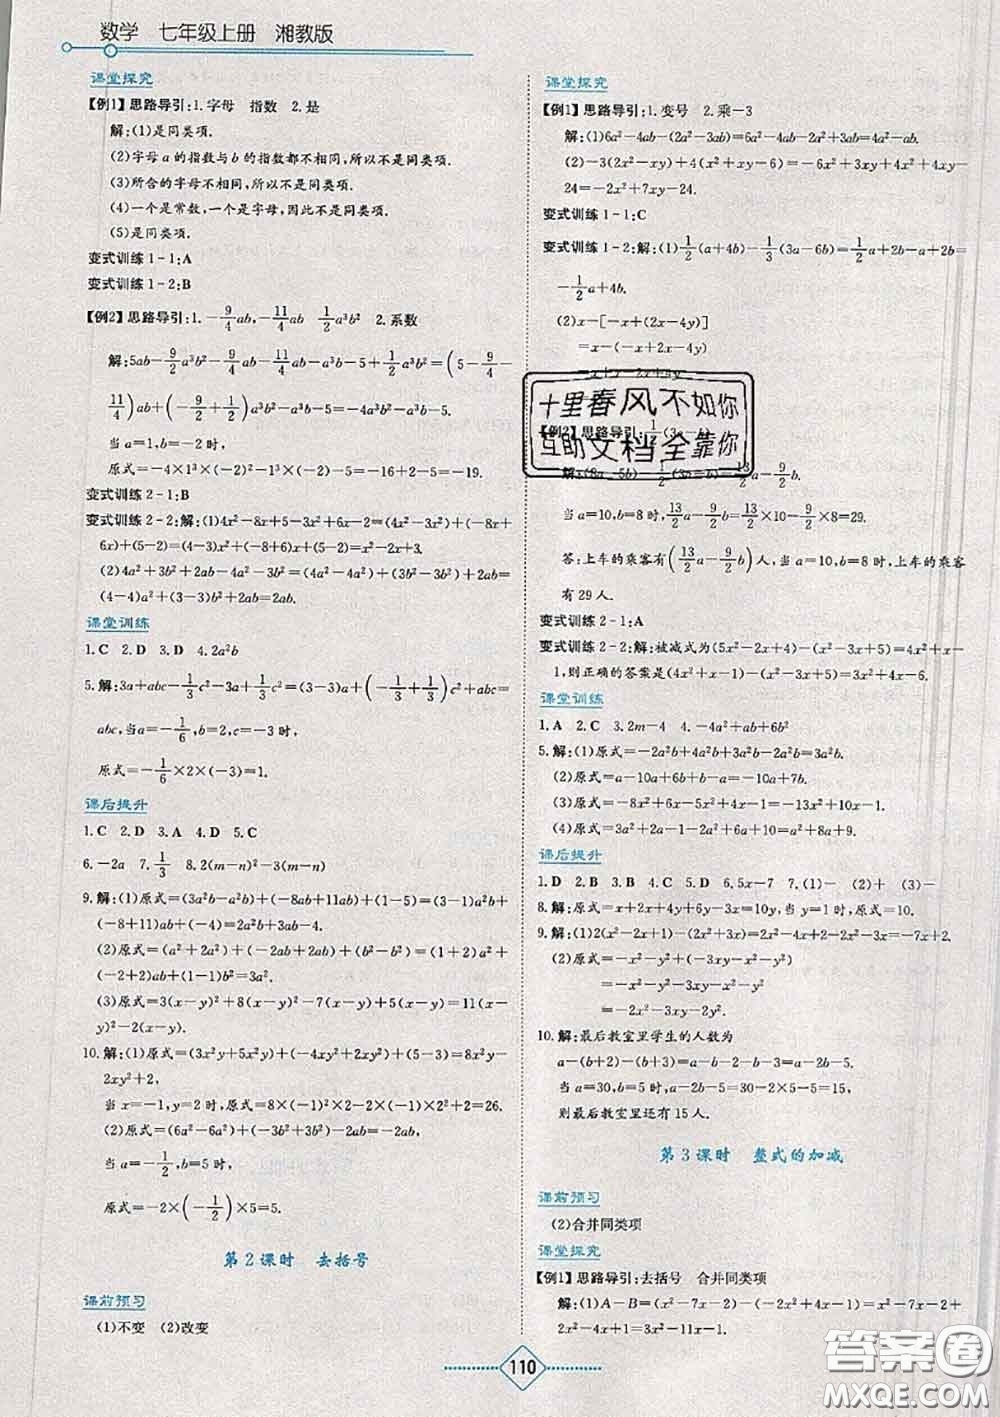 数学 七年级上册 湘教版
课堂探究
【例1】思路导引:1.字母 指数 2.是
解:(1)是同类项.
(2)字母a的指数与b的指数都不相同,所以不是同类项.
(3)所含的字母不相同,所以不是同类项.
(4)一个是常数,一个是字母,因此不是同类项.
(5)是同类项.
变式训练1-1:A
变式训练1-2:B
【例2】思路导引:1.-9/4ab,-11/4ab 1/2a³b² 2.系数
解:5ab-9/2a³b²-9/4ab-11/4ab-a³b-5+1/2a³b²=(5-9/4-
11/4)ab+(-9/2+1/2)a³b²-a³b-5=-4a³b²-a³b-5.
当a=1,b=3时,
原式=-4×1³×3²-1³×3-5=-4×9-3-5=-44.
变式训练2-1:B
变式训练2-2:解:(1)4x²-8x+5-3x²+6x-2=(4x²-3x²)+(-8x+
6x)+(5-2)=(4-3)x²+(-8+6)x+(5-2)=x²-2x+3.
(2)4a²+3b²+2ab-4a²-3b²=(4a²-4a²)+(3b²-3b²)+2ab=
(4-4)a²+(3-3)b²+2ab=2ab.
课堂训练
1.C 2.D 3.D 4.2a²b
5.解:3a+abc-1/3c²-3a+1/3c²=(3-3)a+(-1/3+1/3)c²+abc=
abc,当a=-1/6,b=2,c=-3时,
原式=-1/6×2×(-3)=1.
课后提升
1.C 2.D 3.A 4.D 5.C
6.-2a 7.1/3 8.2(m-n)²-3(m-n)
9.解:(1)原式=(3a²b-a²b)+(-8ab+11ab)+(-4)=(3-1)a²b+
(-8+11)ab+(-4)=2a²b+3ab-4.
(2)原式=(a²+2a²)+(-2ab+2ab)+(b²-b²)=(1+2)a²+
(-2+2)ab+(1-1)b²=3a².
(3)原式=3(x-y)²+8(x-y)²-7(x-y)+5(x-y)=11(x-
y)²-2(x-y).
10.解:(1)原式=(3x²y+5x²y)+(-4xy²+2xy²)+(5-3)=8x²y-
2xy²+2,
当x=-1,y=2时,原式=8×(-1)²×2-2×(-1)×2²+2=26.
(2)原式=(6a²-6a²)+(-3b²+3b²)-2a=-2a,
当a=-1/2,b=5时,
原式=-2×(-1/2)×5=5.
第2课时 去括号
课前预习
(1)不变 (2)改变
课堂探究
【例1】思路导引:1.变号 2.乘-3
解:(1)6a²-4ab-(2a²-3ab)=6a²-4ab-2a²+3ab=4a²-ab.
(2)-3(2x²-xy)+4(x²+xy-6)=-6x²+3xy+4x²+4xy-
24=-2x²+7xy-24.
变式训练1-1:C
变式训练1-2:(1)1/2(a+4b)-1/3(3a-6b)=1/2a+2b-a+2b=
-1/2a+4b.
(2)x-[-x+(2x-4y)]
=x-(-x+2x-4y)
【例2】思路导引:1/2
当a=10,b=8时,13/2a-9/2b=13/2×10-9/2×8=29.
答:上车的乘客有(13/2a-9/2b)人,当a=10,b=8时,上车的乘客
有29人.
变式训练2-1:A
变式训练2-2:解:被减式为(5x²-2x+4)-(x²-3x+5)=4x²+x
-1,则正确的答案是(4x²+x-1)-(x²-3x+5)=3x²+4x-6.
课堂训练
1.A 2.C 3.2m-4 4.-4a²+ab+6b²
5.解:(1)原式=-2a²b+4a²b+3a²b-2a²b=3a²b.
(2)原式=a-10a+6b+b-a=-10a+7b.
(3)原式=-8x²+6x-5x²+4x-1=-13x²+10x-1.
(4)原式=3a²+2a-1-2a²-6a+10=a²-4a+9.
课后提升
1.D 2.B 3.B 4.C 5.D 6.5x-7 7.(1)- (2)+ (3)-
8.解:原式=x+2x+4y+6y-3x=10y,当y=1时,原式=10.
9.解:(1)2(x²-2x+1)-(2x²+3x)=2x²-4x+2-2x²-3x=-7x+2.
(2)原式=-x²-y²+(-3xy-x²-y²)
=-x²-y²-3xy-x²-y²
=-2x²-3xy-2y².
10.解:最后教室里学生的人数为
a-(b+2)-(b+3)=a-b-2-b-3=a-2b-5.
当a=30,b=5时,a-2b-5=30-2×5-5=15,
则最后教室里还有15人.
第3课时 整式的加减
课前预习
(2)合并同类项
课堂探究
【例1】思路导引:去括号 合并同类项
解:(1)A-B=(x²-7x-2)-(-2x²+4x-1)=x²-7x-2+
2x²-4x+1=3x²-11x-1.
110
十里春风不如你
互助文档全靠你
答案圈
MXQE.COM